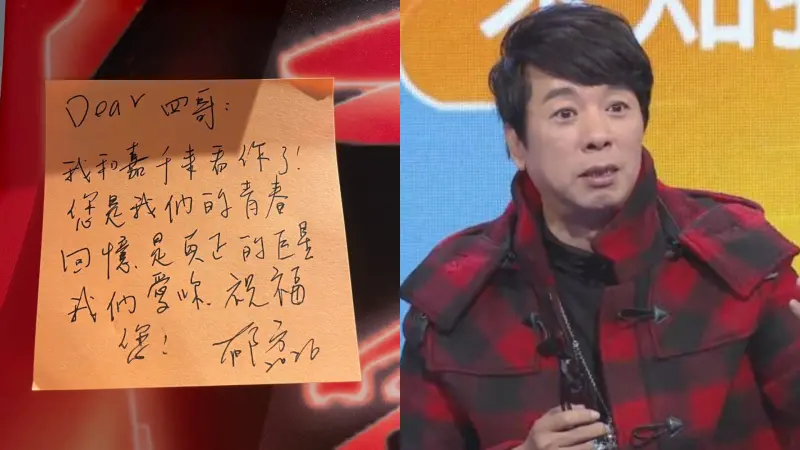 Dear 四哥:
我和嘉千來看你了!
您是我們的青春
回憶.是真正的巨星
我們愛你.祝福
您! 郁方 2026
知